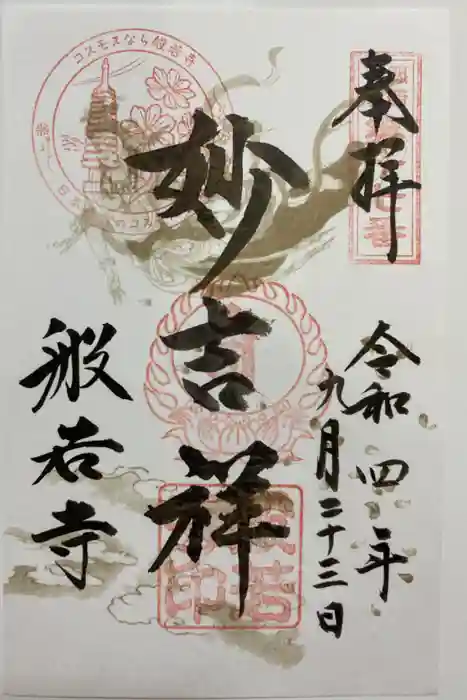 奉拝
令和四年
九月二十三日
妙吉祥
般若寺
コスモスなら般若寺
般若寺印